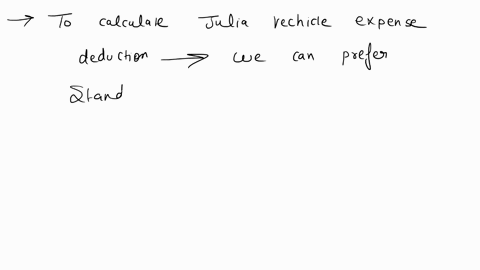 → To calculate Julia vechicle expense
deduction → we can prefer
Stand